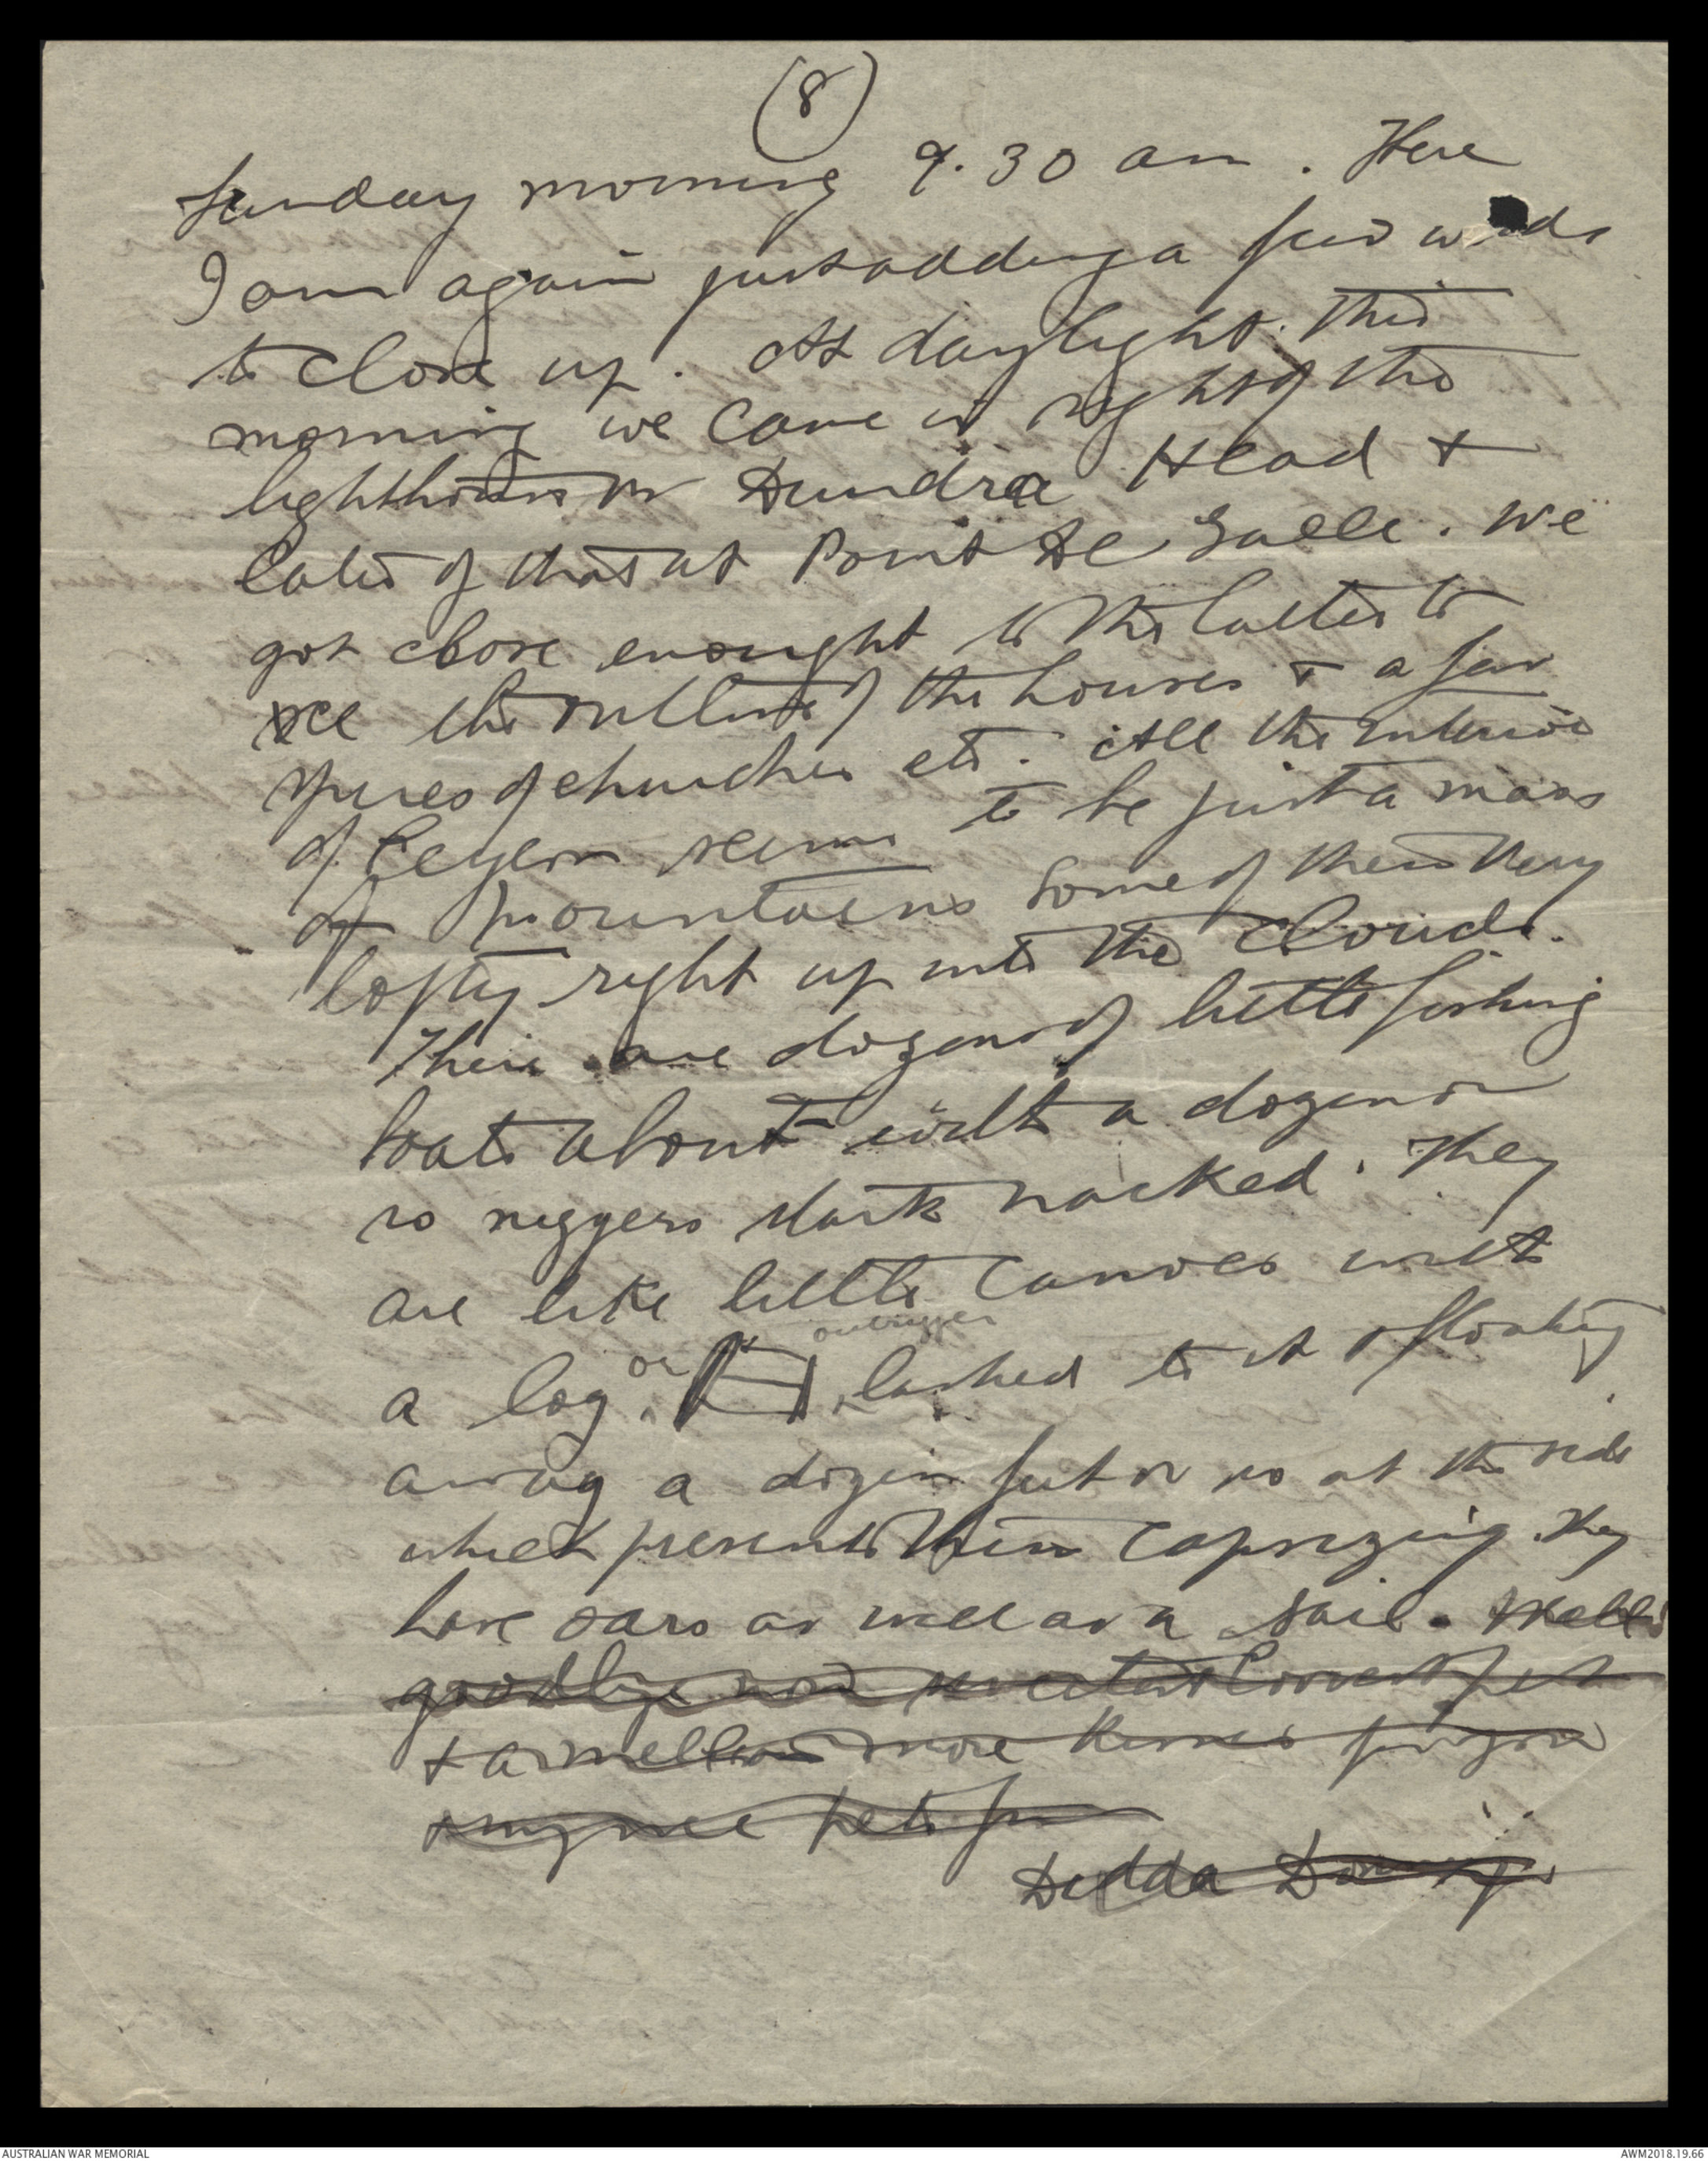 (8)
Sunday morning 9.30 am. Here
I am again just adding a few words
to close up. At daylight this
morning we came in sight of the
lighthouse on Dundra Head &
later of that at Point de Galle. We
got close enought to the latter to
see the outline of the houses & a few
spires of churches etc. All the interior
of Ceylon seems to be just a mass
of mountains some of them very
lofty right up into the clouds.
There are dozens of little fishing
boats about with a dozen or
so niggers stark nacked. They
are like little canoes with
outrigger
a log or lashed to it & floating
away a dozen feet or so at the side
which prevents them capsizing. They
have oars as well as a sail. Well
goodbye now sweetest Sweetest pet
& a million more kisses for you
my wee pets from
Dedda
AUSTRALIAN WAR MEMORIAL
AWM2018.19.66